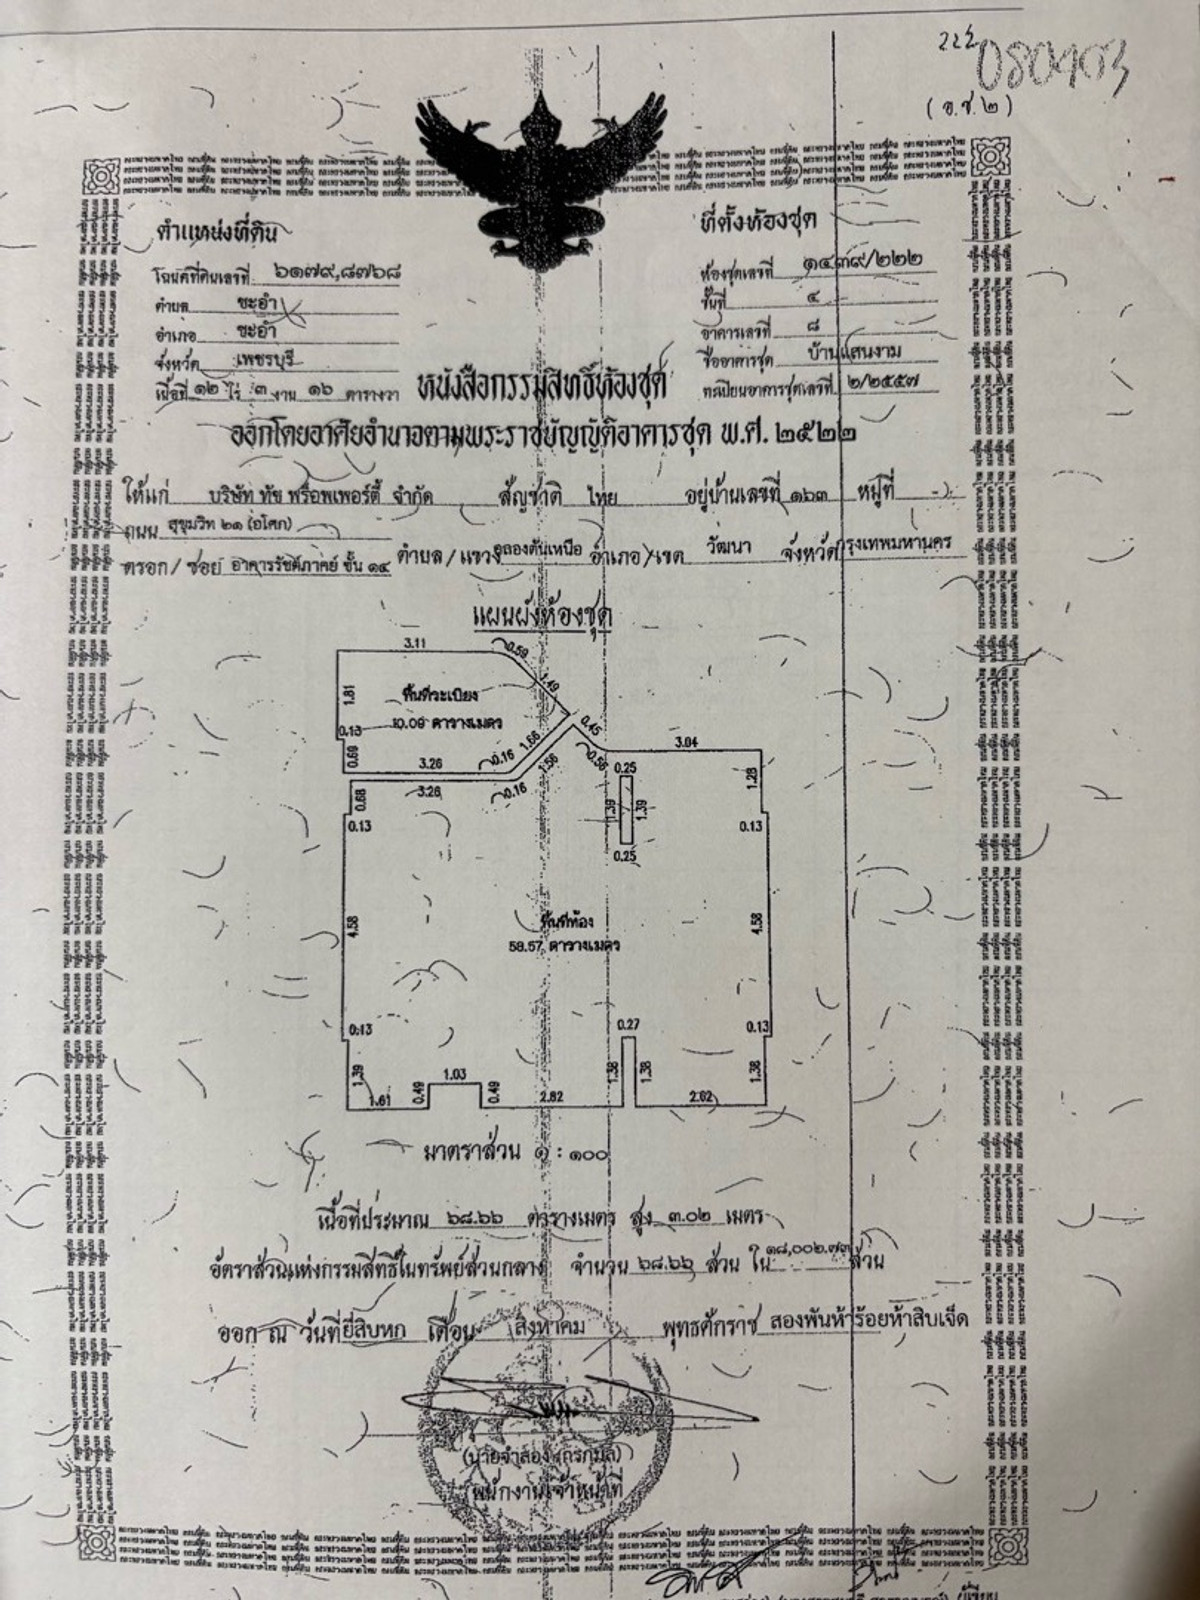 (อ.ช.๒)
ตำแหน่งที่ดิน
โฉนดที่ดินเลขที่ ๖๑๗๙,๘๗๖๘
ตำบล ชะอำ
อำเภอ ชะอำ
จังหวัด เพชรบุรี
เนื้อที่ ๑๒ ไร่ ๓ งาน ๑๖ ตารางวา
ที่ตั้งห้องชุด
ห้องชุดเลขที่ ๑๔๓๙/๒๒๒
ชั้นที่ ๔
อาคารเลขที่ ๘
ชื่ออาคารชุด บ้านแสนงาม
ทะเบียนอาคารชุดเลขที่ ๒/๒๕๕๗
หนังสือกรรมสิทธิ์ห้องชุด
ออกโดยอาศัยอำนาจตามพระราชบัญญัติอาคารชุด พ.ศ. ๒๕๒๒
ให้แก่ บริษัท ทัช พร็อพเพอร์ตี้ จำกัด สัญชาติ ไทย อยู่บ้านเลขที่ ๑๖๓ หมู่ที่ -
ถนน สุขุมวิท ๒๑ (อโศก)
ตรอก/ซอย อาคารรัชต์ภาคย์ ชั้น ๑๔ ตำบล/แขวง คลองตันเหนือ อำเภอ/เขต วัฒนา จังหวัด กรุงเทพมหานคร
แผนผังห้องชุด
3.11
0.59
1.49
1.81
พื้นที่ระเบียง
10.09 ตารางเมตร
0.13
0.69
3.26
0.16
1.66
0.45
0.56
3.04
3.26
0.16
1.56
0.68
0.13
0.25
1.39
1.39
0.25
1.28
0.13
4.58
พื้นที่ห้อง
58.57 ตารางเมตร
4.58
0.13
0.27
0.13
1.39
1.61
0.49
1.03
0.49
2.82
1.38
1.38
2.62
1.38
มาตราส่วน ๑ : ๑๐๐
เนื้อที่ประมาณ ๖๘.๖๖ ตารางเมตร สูง ๓.๐๒ เมตร
อัตราส่วนแห่งกรรมสิทธิ์ในทรัพย์ส่วนกลาง จำนวน ๖๘.๖๖ ส่วน ใน ๑๘,๐๐๒.๗๓ ส่วน
ออก ณ วันที่ ยี่สิบหก เดือน สิงหาคม พุทธศักราช สองพันห้าร้อยห้าสิบเจ็ด
(นายจำลอง
พนักงานเจ้าหน้าที่